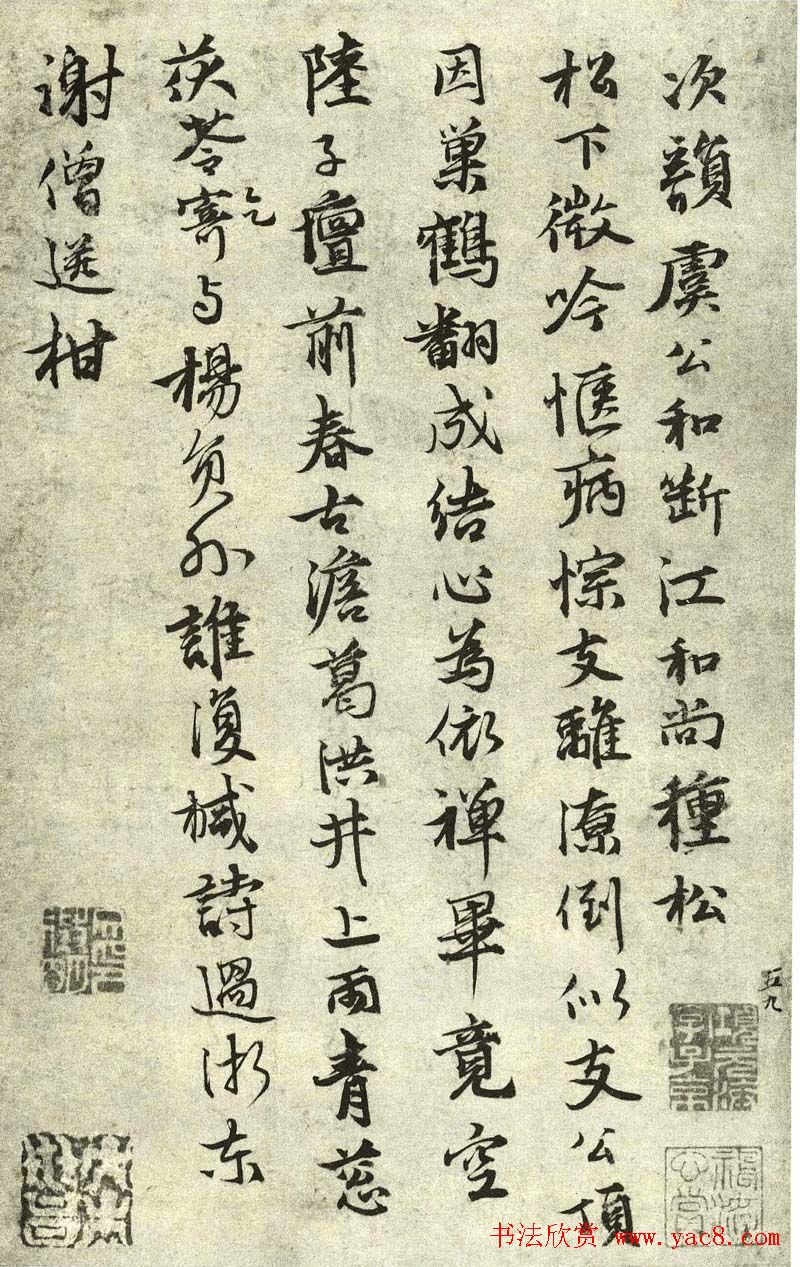 次韻虞公和斷江和尚種松
松下微吟愜病悰支離潦倒似支公頂
因巢鶴翻成結心為依禪畢竟空
陸子壇前春古澹葛洪井上雨青葱
茯苓寄乞与楊員外誰復椷詩過浙东
謝僧送柑
五九
书法欣赏 www.yac8.com